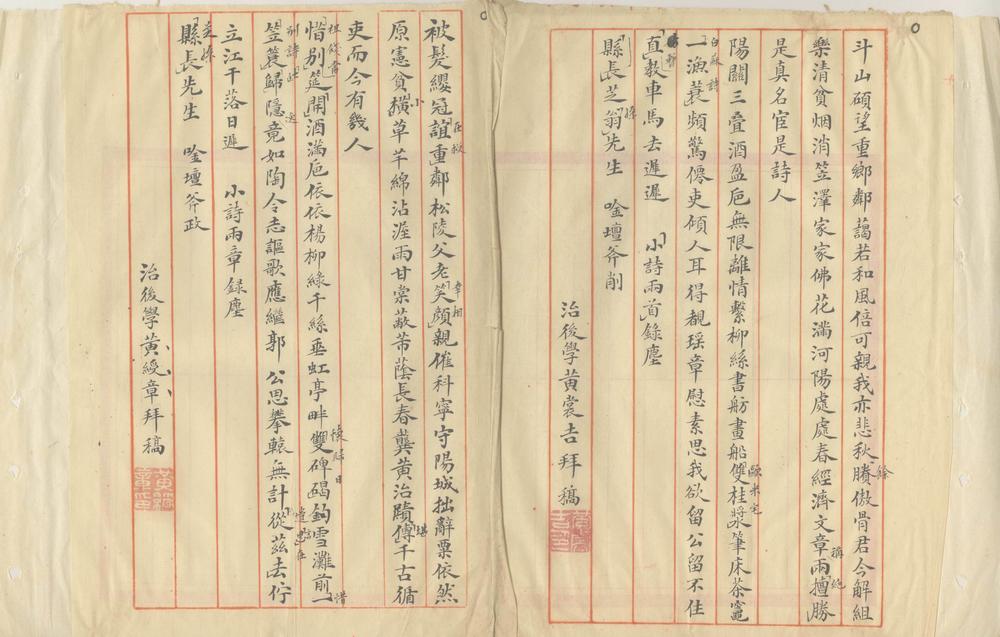 斗山碩望重鄉鄰藹若和風倍可親我亦悲秋賸傲骨君今解組
樂清貧烟消笠澤家家佛花滿河陽處處春經濟文章兩擅勝
是真名宦是詩人
陽關三疊酒盈巵無限離情繫柳絲書舫畫船雙桂槳筆床茶竈
一漁蓑頻驚僚吏傾人耳得覩瑶章慰素思我欲留公留不住
直教車馬去遲遲　小詩兩首錄塵
縣長芝翁先生　唫壇斧削
治後學黃裳吉拜稿
被髮纓冠誼重鄰松陵父老笑顏親催科寧守陽城拙辭粟依然
原憲貧橫草芊綿沾渥雨甘棠蔽芾蔭長春龔黃治蹟傳千古循
吏而今有幾人
惜別筵開酒滿巵依依楊柳綠千絲垂虹亭畔雙碑碣釣雪灘前一
笠蓑歸隱竟如陶令志謳歌應繼郭公思攀轅無計從茲去佇
立江干落日遲　小詩兩章録塵
縣長先生　唫壇斧政
治後學黃綬章拜稿